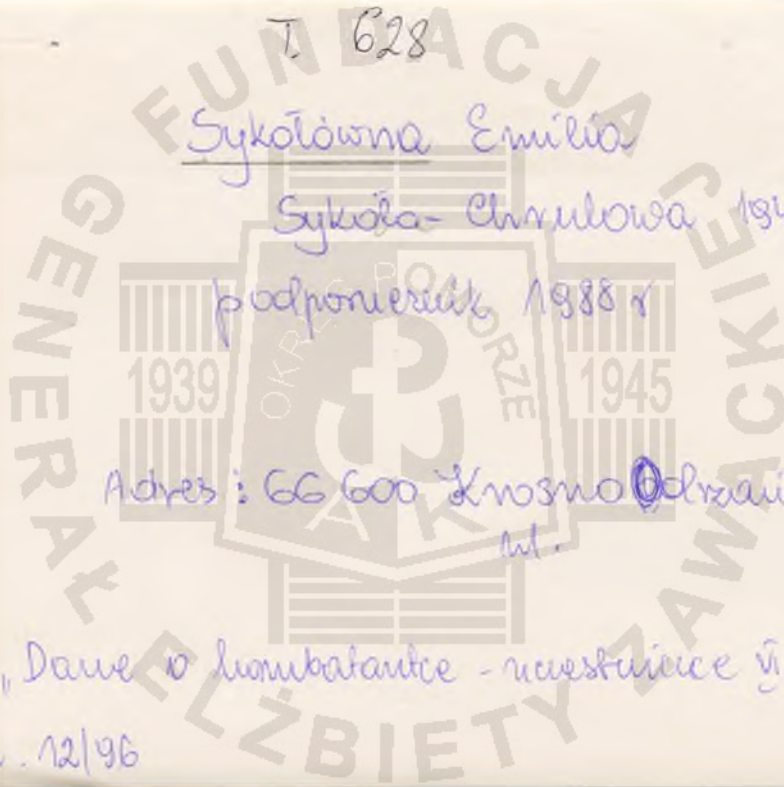 T. 628
Sykołówna Emilia
Sykoła - Chrulowa 194
podporucznik 1988 r
Adres : 66 600 Krosno Odrzań
ul.
„Dane o kombatantce - uczestniczce VI
. 12/96
FUNDACJA
GENERAŁ ELŻBIETY ZAWACKIEJ
OKRĘG POMORZE
1939
1945
AK